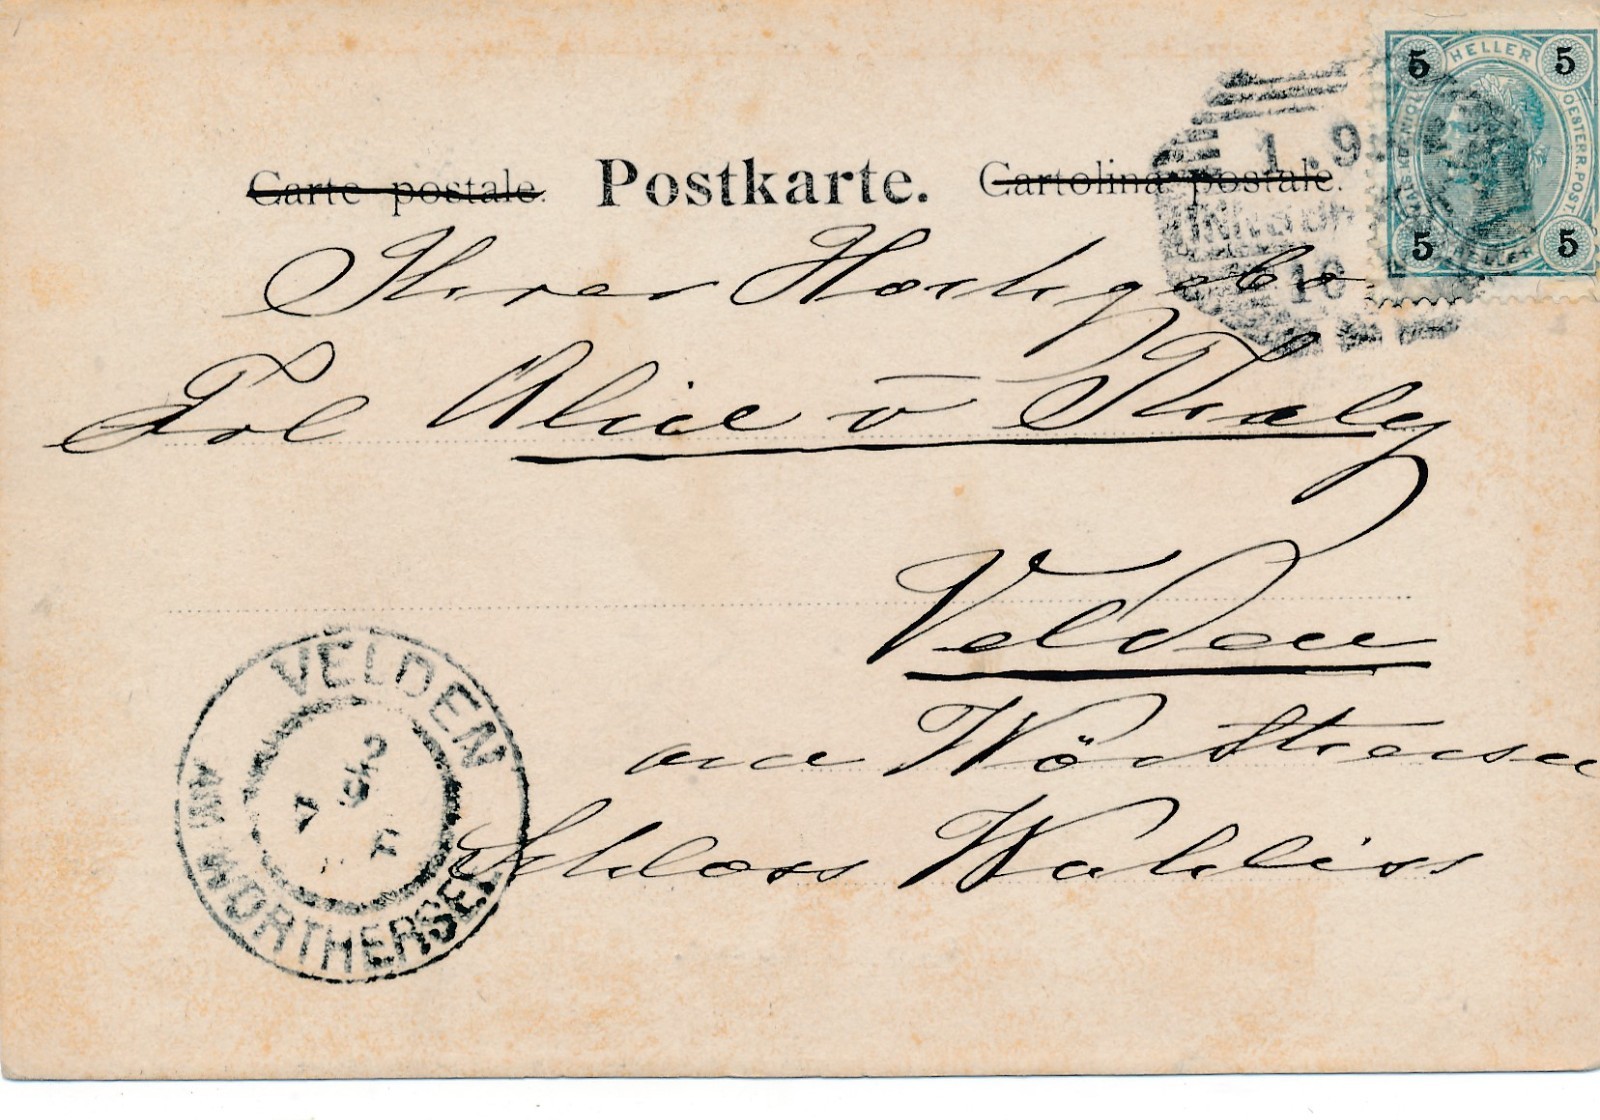 Carte postale. Postkarte. Cartolina postale.
5 HELLER 5
OESTERR. POST.
5 HELLER 5
1.9.
INNSBR
10
Ihrer Hochgebo
Frl Alice v Thaly
Velden
am Wörthersee
Schloss Wahliss
VELDEN
2
9
AM WÖRTHERSEE